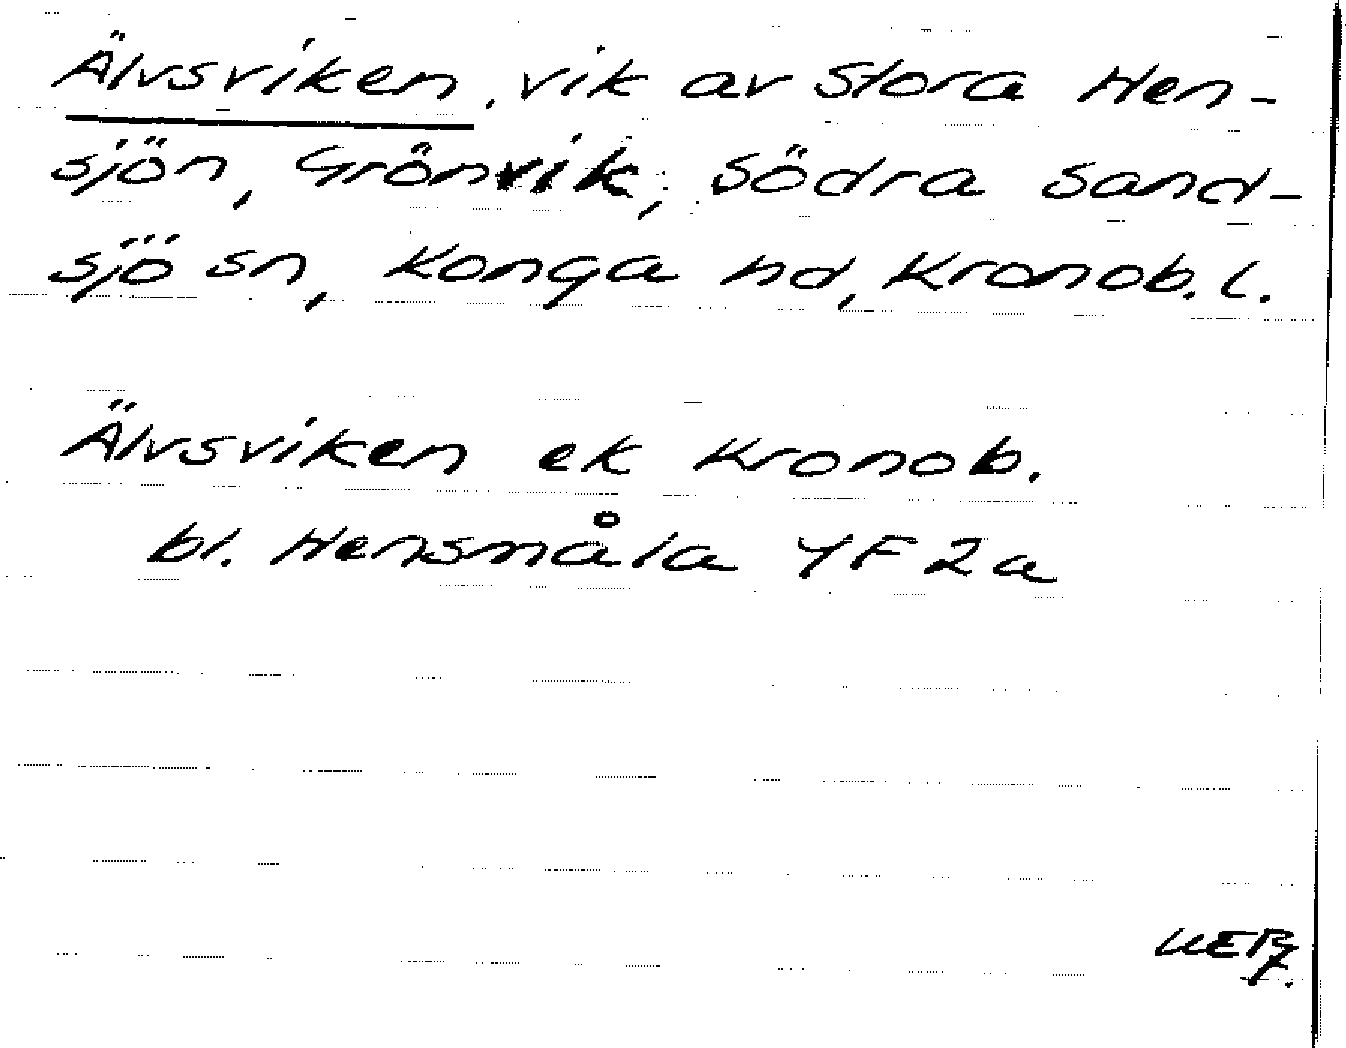 Älvsviken, vik av Stora Hen-
sjön, Grönvik, Södra Sand-
sjö sn, Konga hd, Kronob. l.
Älvsviken ek Kronob.
bl. Hensmåla 4F2a